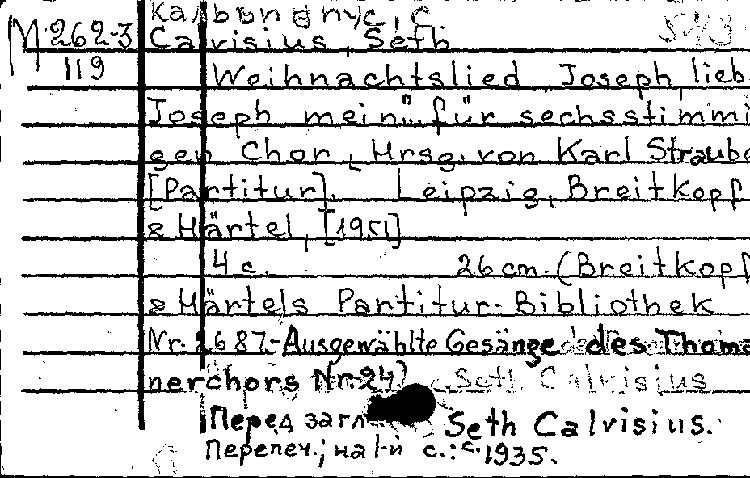 М 262-3
119
Кальвизиус, С
Calvisius, Seth
Weihnachtslied Joseph, lieb
Joseph mein" für sechsstimmi
gen Chor. Hrsg. von Karl Straube
[Partitur]. Leipzig, Breitkopf
& Härtel, [1951]
4 c. 26 cm. (Breitkopf
& Härtels Partitur-Bibliothek
Nr. 2687.- Ausgewählte Gesänge des Thoma
nerchors Nr. 24) Seth Calvisius
Перед загл Seth Calvisius.
Перепеч.; на 1-й с.: c. 1935.